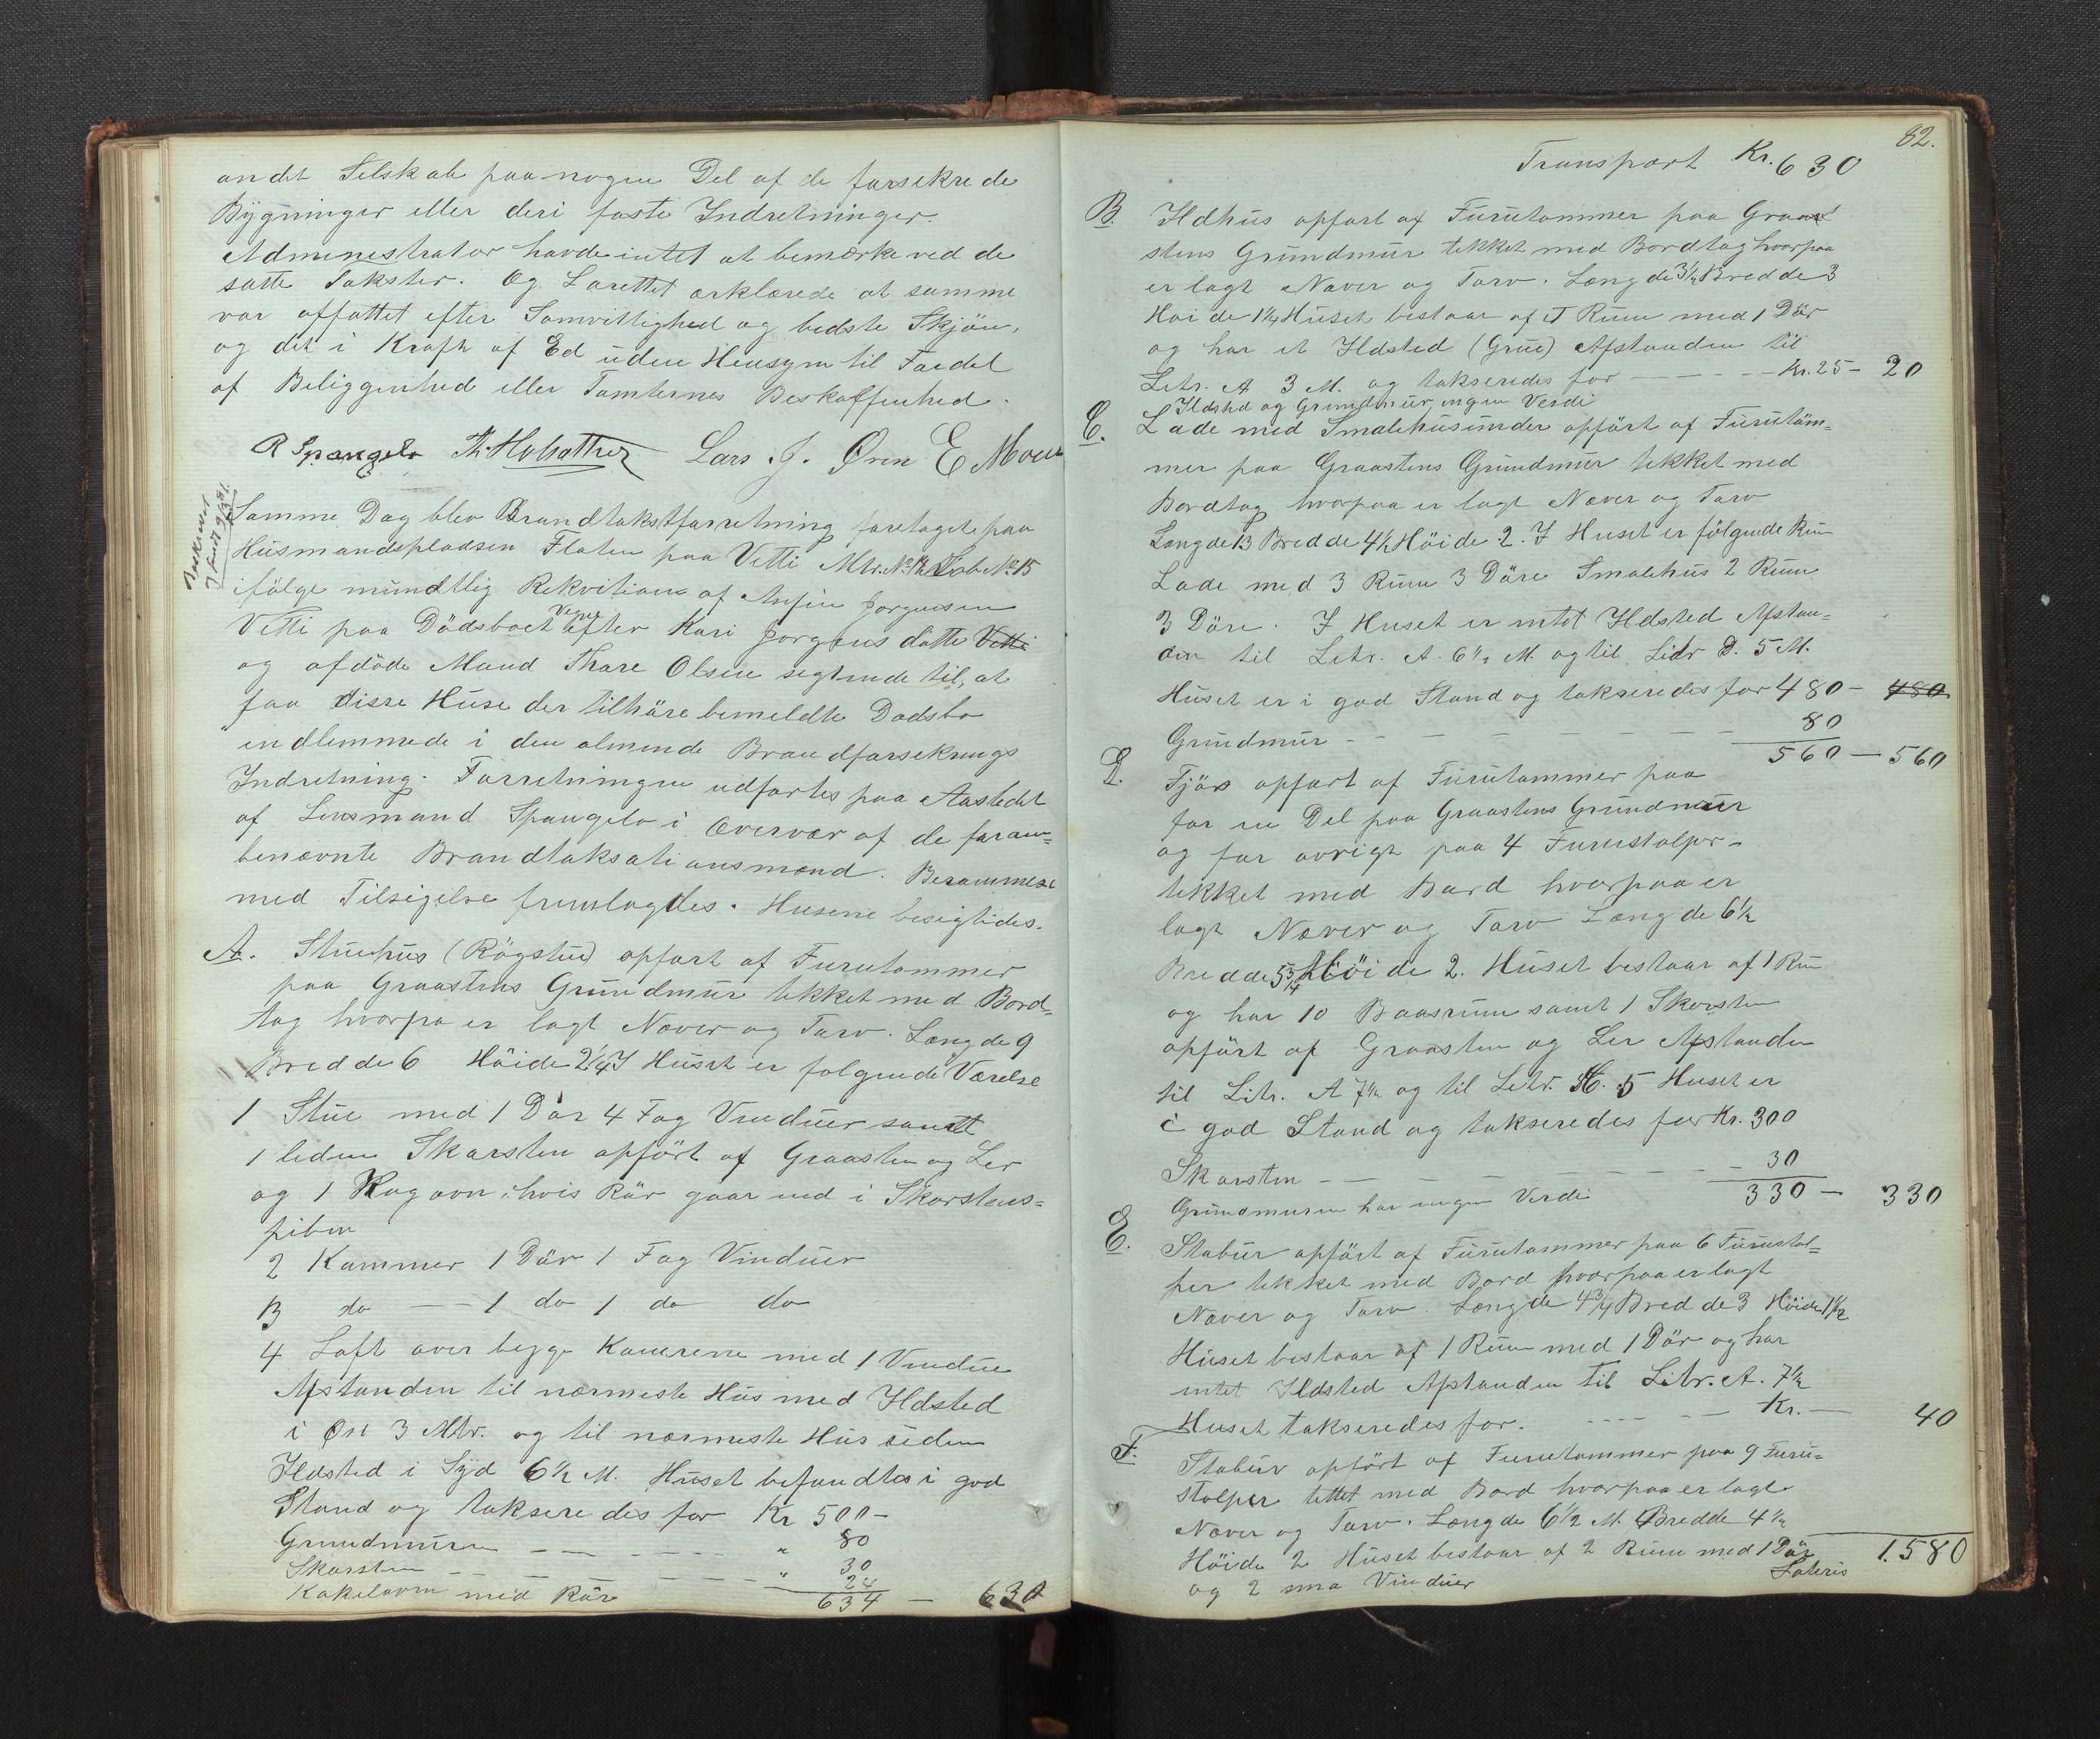 andet Selskab paa nogen Del af de forsikrede
Bygninger eller deri faste Indretninger.
Administrator havde intet at bemærke ved de
satte Takster. Og Larettet erklærede at samme
var affattet efter Samvittighed og bedste Skjøn,
og det i Kraft af Ed uden Hensyn til Fordel
af Beliggenhed eller Tomternes Beskaffenhed.
R Spangelo Lars J. Øren E Moen
Beskrevet
9/3 81.
Samme Dag blev Brandtakstforretning foretaget paa
Husmandspladsen Flaten paa Vetti Mtr. No Løb No 15
ifølge mundtlig Rekvition af Anfin Jørgensen
Vetti paa Dødsboets Vegne efter Kari Jørgens datter Vetti
og afdøde Mand Thore Olsen sigtende til, at
faa disse Huse der tilhøre bemeldte Dødsbo
indlemmede i den almende Brandforsikrings
Indretning. Forretningen udførtes paa Aastedet
af Lensmand Spangelo i Overvær af de foran=
benævnte Brandtaksationsmænd. Berammelse
med Tilsigelse fremlagdes. Husene besigtedes.
A. Stuehus (Røgstue) opført af Furutømmer
paa Graastens Grundmur tekket med Bord=
tag hvorpa er lagt Næver og Tørv. Længde 9
Bredde 6 Høide 2 1/4 I Huset er følgende Værelse
1 Stue med 1 Dør 4 Fag Vinduer samt
1 liden Skorsten opført af Graasten og Ler
og 1 Kagovn, hvis Rør gaar ind i Skorstens=
piben
2 Kammer 1 Dør 1 Fag Vinduer
3 do — — 1 do 1 do do
4 Loft over begge Kamrene med 1 Vindue
Afstanden til nærmeste Hus med Ildsted
i Øst 3 Mtr. og til nærmeste Hus uden
Ildsted i Syd 6 1/2 M. Huset befandtes i god
Stand og takseredes for Kr 500 -
Grundmuren — — — — " 80
Skorsten — — — — — " 30
Kakelovn med Rør 24
634 — 630
82.
Transport Kr. 630
B. Ildhus opført af Furutømmer paa Graa
stens Grundmur tekket med Bordtag hvorpaa
er lagt Næver og Tørv. Længde 3 1/2 Bredde 3
Høide 1 1/4 Huset bestaar af et Rum med 1 Dør
og har et Ildsted (Grue) Afstanden til
Litr. A 3 M. og takseredes for — — — Kr. 25 - 20
Ildsted og Grundmur ingen Verdi
C. Lade med Smalehusunder opført af Furutøm=
mer paa Graastens Grundmur tekket med
Bordtag hvorpaa er lagt Næver og Tørv
Længde 13 Bredde 4 1/2 Høide 2. I Huset er følgende Rum
Lade med 3 Rum 3 Døre Smalehus 2 Rum
3 Døre. I Huset er intet Ildsted Afstan=
den til Litr. A. 6 1/2 M. og til Litr D. 5 M.
Huset er i god Stand og takseredes for 480 - 480
Grundmur — — — — — — 80
560 — 560
D. Fjøs opført af Furutømmer paa
for en Del paa Graastens Grundmur
og for øvrigt paa 4 Furustolper -
tekket med Bord hvorpaa er
lagt Næver og Tørv Længde 6 1/2
Bredde 5 3/4 Høide 2. Huset bestaar af 1 Rum
og har 10 Baasrum samt 1 Skorsten
opført af Graasten og Ler Afstanden
til Litr. A 7 1/2 og til Litr. C. 5 Huset er
i god Stand og takseredes for Kr. 300
Skorsten — — — — — — 30
Grundmuren har ingen Verdi 330 — 330
E. Stabur opført af Furutømmer paa 6 Furustol=
per tekket med Bord hvorpaa er lagt
Næver og Tørv. Længde 4 3/4 Bredde 3 Høide 1 1/2
Huset bestaar af 1 Rum med 1 Dør og har
intet Ildsted Afstanden til Litr. A. 7 1/2
Huset takseredes for. — — — Kr. — 40
F. Stabur opført af Furutømmer paa 9 Furu=
stolper tettet med Bord hvorpaa er lagt
Næver og Tørv. Længde 6 1/2 M. Bredde 4 1/2
Høide 2 Huset bestaar af 2 Rum med 1 Dør
og 2 sma Vinduer Lateris 1.580